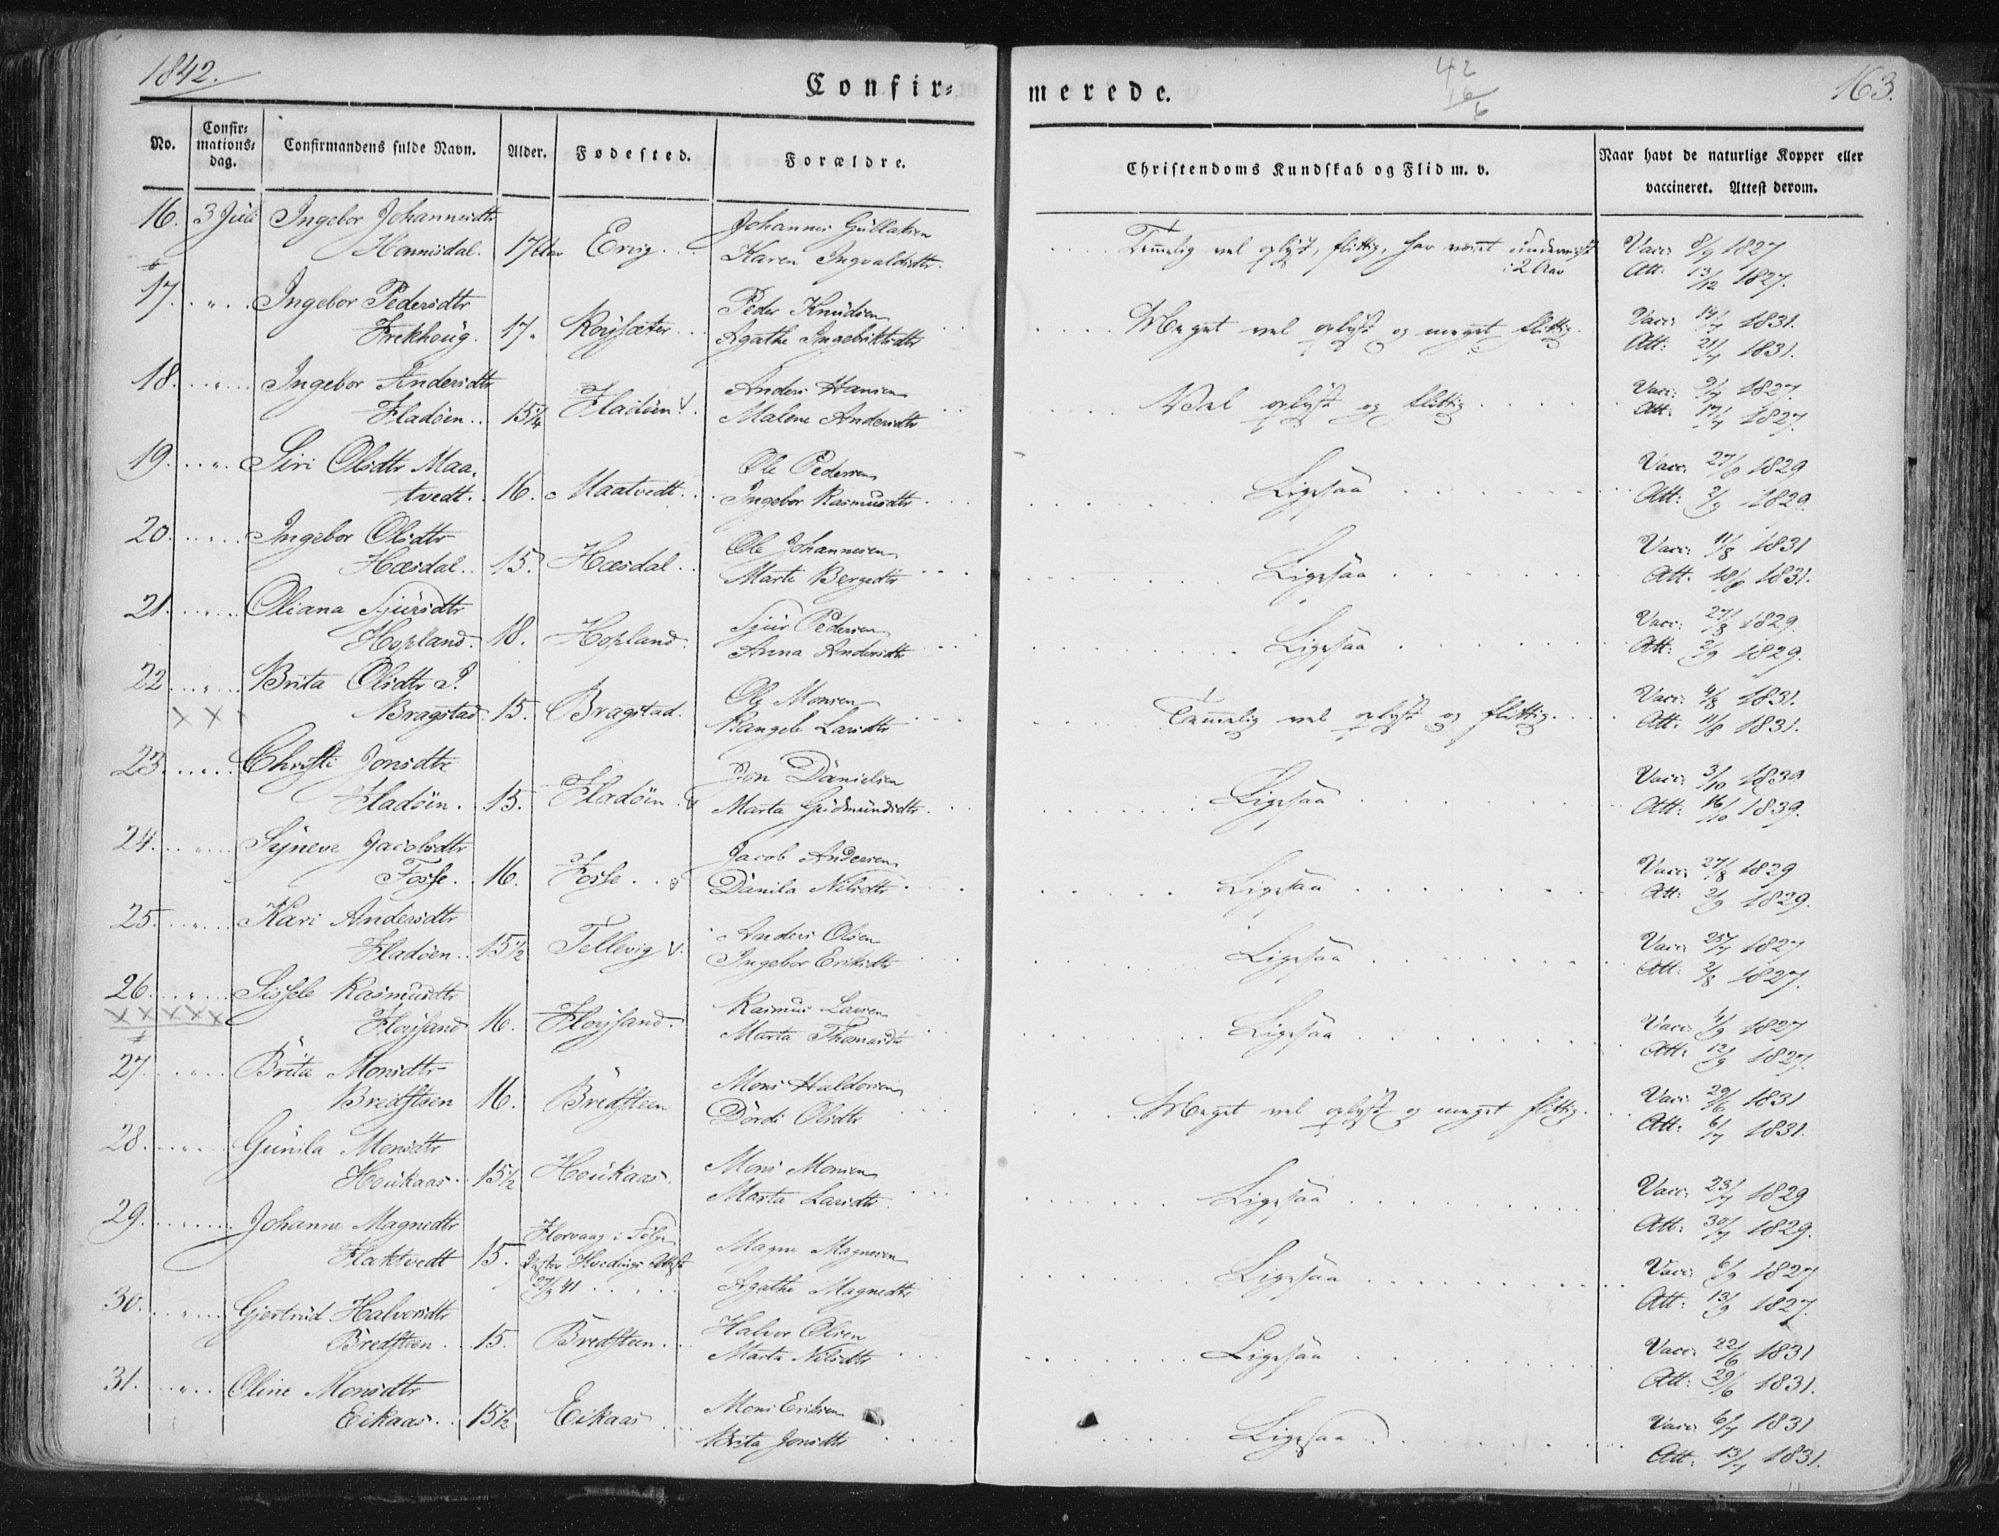 1842.
Confir=
merede.
42
16
6
163.
No.
Confir=
mations=
dag.
Confirmandens fulde Navn.
Alder.
Fødested.
Forældre.
Christendoms Kundskab og Flid m. v.
Naar havt de naturlige Kopper eller
vaccineret. Attest derom.
16. 3 Juli Ingebor Johannesdtr Johannes Gullaksen
Hannisdal. 17 Aar Karen Ingvaldsdtr. Temmelig vel oplyst, flittig, har været undervist i 2 Aar Vacc: 8/9 1827
Att: 13/12 1827.
17. " Ingebor Pedersdtr Peder Knudsen
Frekhoug. 17. Rossæter Agathe Ingebriktsdtr Meget vel oplyst og meget flittig. Vacc: 14/7 1831.
Att: 21/7 1831.
18. " Ingebor Andersdtr Anders Hansen
Fladöen. 15 1/4 Fladöen Malene Andersdtr Vel oplyst og flittig Vacc: 9/7 1827.
Att: 17/7 1827.
19. " Siri Olsdtr Maa- Ole Pedersen
tvedt. 16. Maatvedt. Ingebor Rasmusdtr Ligesaa Vacc: 27/8 1829
Att: 2/9 1829.
20. " Ingebor Olsdtr Ole Johannesen
Hæsdal. 15. Hæsdal. Marte Bergesdtr Ligesaa Vacc: 11/8 1831
Att: 18/8 1831.
21. " Oliana Sjursdtr Sjur Pedersen
Hopland. 18. Hopland. Anna Andersdtr Ligesaa Vacc: 27/8 1829.
Att: 2/9 1829.
22. " Brita Olsdtr Ole Monsen
Bragstad. 15. Bragstad. Rangele Larsdtr Temmelig vel oplyst og flittig. Vacc: 4/8 1831.
Att: 11/8 1831.
23. " Christi Jonsdtr Jon Danielsen
Fladöen. 15. Fladöen. Marta Gudmundsdtr. Ligesaa Vacc: 3/10 1839
Att: 16/10 1839.
24. " Synneve Jacobsdtr Jacob Andersen
Fosse. 16. Fosse. Danila Nilsdtr. Ligesaa Vacc: 27/8 1829
Att: 2/9 1829.
25. " Kari Andersdtr Anders Olsen
Fladöen. 15 1/2 Tellevig Ingebor Eriksdtr Ligesaa Vacc: 25/7 1827
Att: 2/8 1827.
26. " Sissele Rasmusdtr Rasmus Larsen
Floysand 16. Floysand. Marta Thomasdtr Ligesaa Vacc: 4/9 1827
Att: 12/9 1827.
27. " Brita Monsdtr Mons Haldorsen
Bredsteen 16. Bredsteen Dordi Olsdtr Meget vel oplyst og meget flittig. Vacc: 29/6 1831
Att: 6/7 1831.
28. " Gunila Monsdtr Mons Monsen
Houkaas. 15 1/2 Houkaas. Marta Larsdtr. Ligesaa Vacc: 23/7 1829
Att: 30/7 1829.
29. " Johanne Magnedtr Florvaag i Følge Magne Magnesen
Flaktvedt 15. Pastor Hvedings Attest 27/9 41 Agathe Magnedtr Ligesaa Vacc: 6/9 1827
Att: 13/9 1827.
30. " Gjertrud Halvorsdtr Halvor Olsen
Bredsteen. 15. Bredsteen. Marta Nilsdtr Ligesaa Vacc: 22/6 1831
Att: 29/6 1831.
31. " Oline Monsdtr Mons Eriksen
Eikaas. 15 1/2 Eikaas Brita Jonsdtr Ligesaa Vacc: 6/7 1831
Att: 13/7 1831.